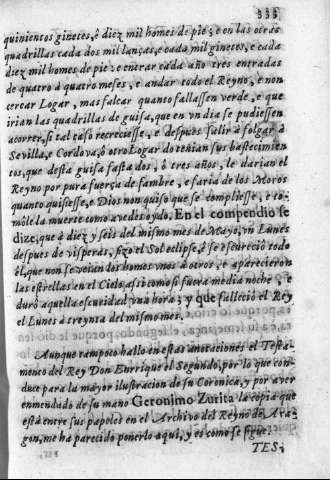 335
quinientos ginetes, è diez mil homes de pie; e en las otras
quadrillas cada dos mil lanças, e cada mil ginetes, e cada
diez mil homes de pie: e entrar cada año tres entradas
de quatro à quatro meses, e andar todo el Reyno, e non
cercar Logar, mas falcar quanto fallassen verde, e que
irian las quadrillas de guisa, que en vn dia se pudiessen
acorrer, si tal caso recreciesse, e despues salir à folgar à
Sevilla, e Cordova, ò otro Logar do teñian sus bastecimien
tos, que desta guisa fasta dos, ò tres años, le darian el
Reyno por pura fuerça de fambre, e faria de los Moros
quanto quisiesse, e Dios non quiso que se compliesse, e to-
mòle la muerte como avedes oydo. En el compendio se
dize, que à diez y seis del mismo mes de Mayo, vn Lunes
despues de visperas, fizo el Sol eclipse, è se escureciò todo
èl, que non se veian los homes vnos à otros, e aparecieron
las estrellas en el Cielo, assi como si fuera media noche, e
durò aquella escuridad vna hora; y que falleciò el Rey
el Lunes à treynta del mismo mes.
Aunque tampoco hallo en estas anotaciones el Testa-
mento del Rey Don Enrrique el Segundo, por lo que con-
duce para la mayor ilustracion de su Coronica, y por aver
enmendado de su mano Geronimo Zurita la copia que
està entre sus papeles en el Archivo del Reyno de Ara-
gon, me ha parecido ponerlo aqui, y es como se sigue.
TES-